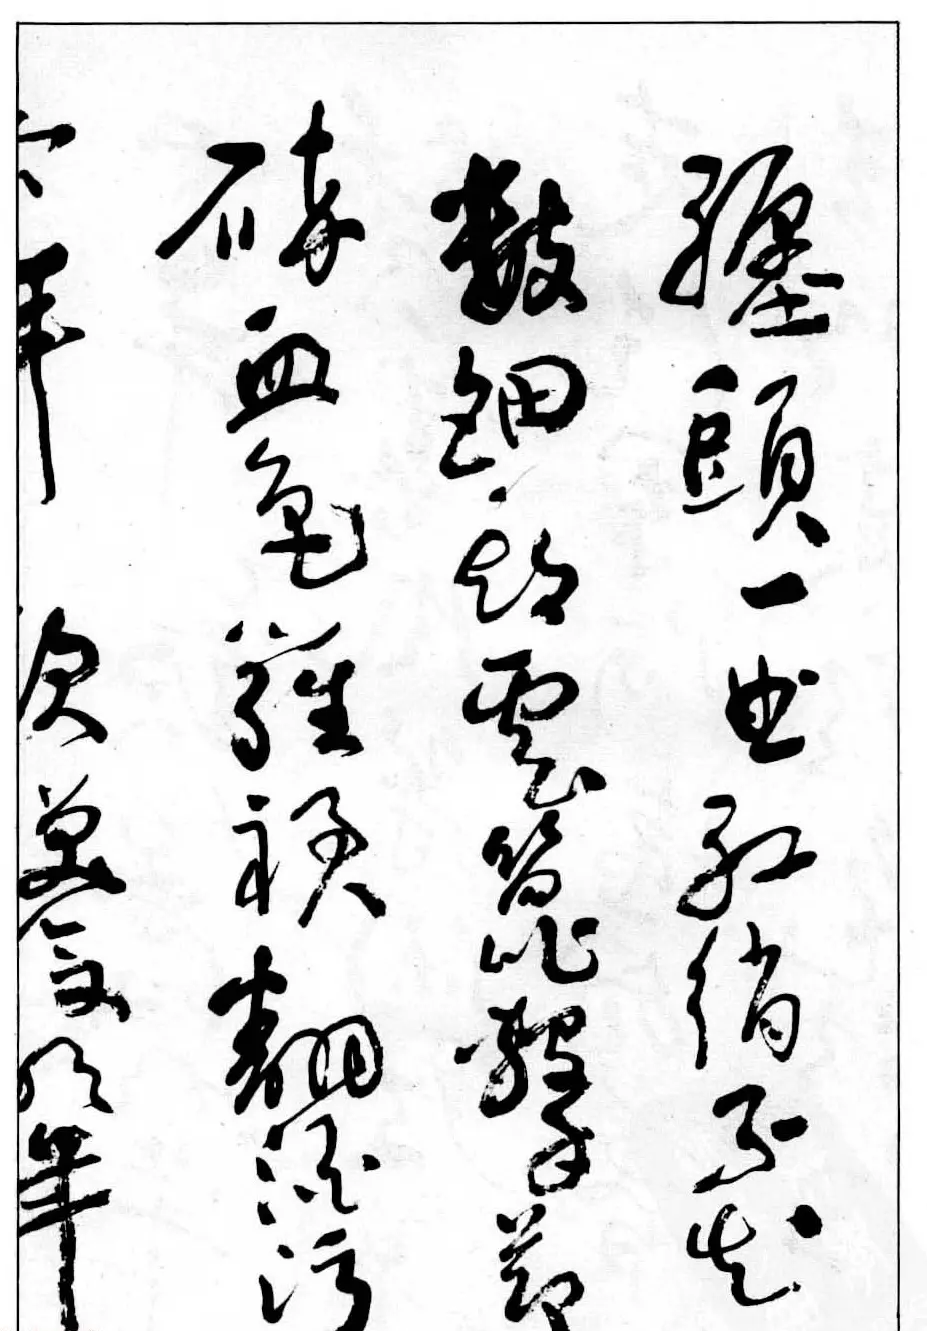 纏頭一曲紅綃不知
數鈿頭雲篦擊節
碎血色羅裙翻酒污
今年歡笑復明年